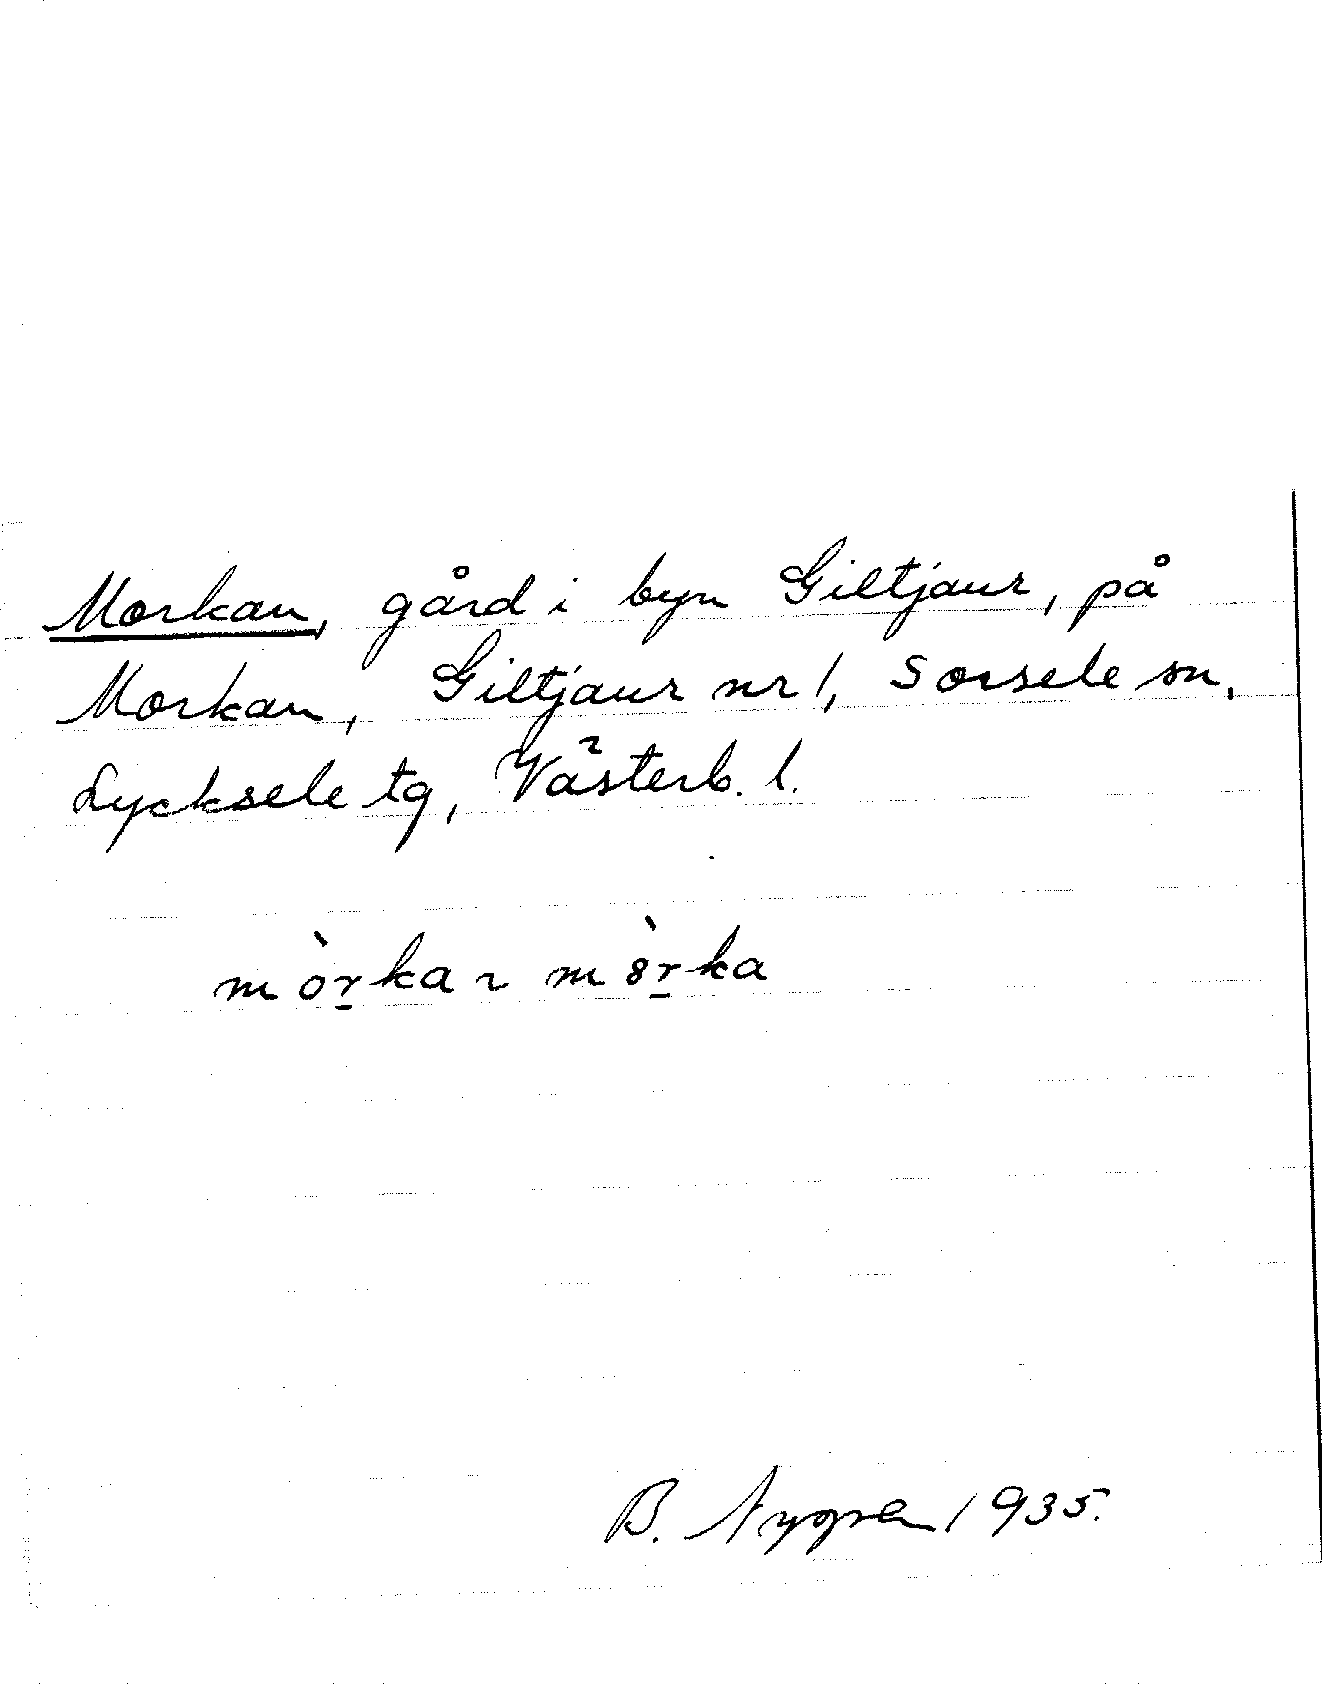 Morkan, gård i byn Giltjaur, på
Morkan, Giltjaur nr 1, Sorsele sn,
Lycksele tg, Västerb. l.
mòr̠ka ~ m8̀r̠ka
B. Nygren 1935.